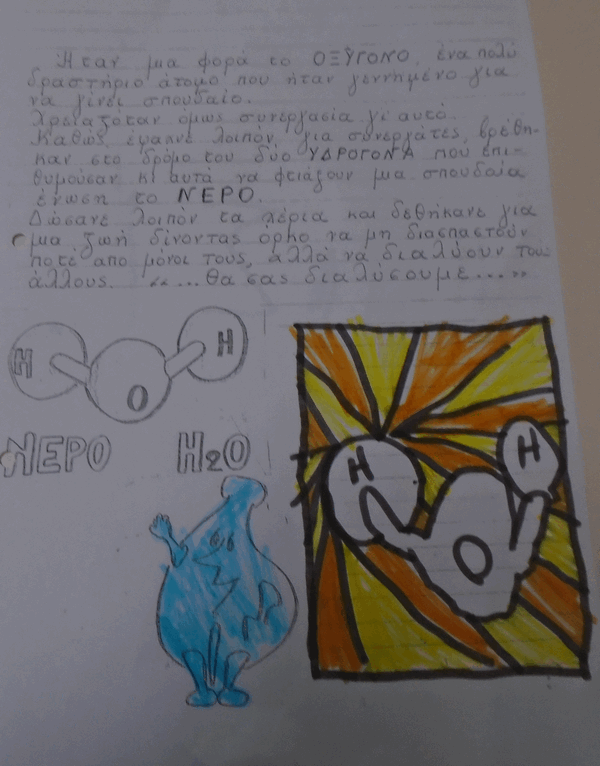 Ήταν μια φορά το ΟΞΥΓΟΝΟ, ένα πολύ
δραστήριο άτομο που ήταν γεννημένο για
να γίνει σπουδαίο.
Χρειαζόταν όμως συνεργασία γι αυτό.
Καθώς έψαχνε λοιπόν, για συνεργάτες, βρέθη-
καν στο δρόμο του δύο ΥΔΡΟΓΟΝΑ που επι-
θυμούσαν κι αυτά να φτιάξουν μια σπουδαία
ένωση το ΝΕΡΟ.
Δώσανε λοιπόν τα χέρια και δεθήκανε για
μια ζωή δίνοντας όρκο να μη διασπαστούν
ποτέ απο μόνοι τους, αλλά να διαλύουν τους
άλλους. «...θα σας διαλύσουμε...»
H O H
ΝΕΡΟ H2O
H O H